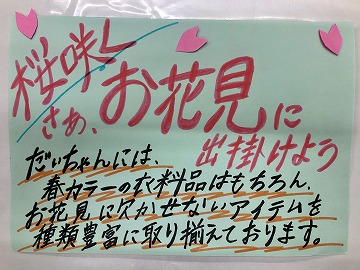 桜咲く
さあ、お花見に
出掛けよう
だいちゃんには、
春カラーの衣料品はもちろん、
お花見に欠かせないアイテムを
種類豊富に取り揃えております。